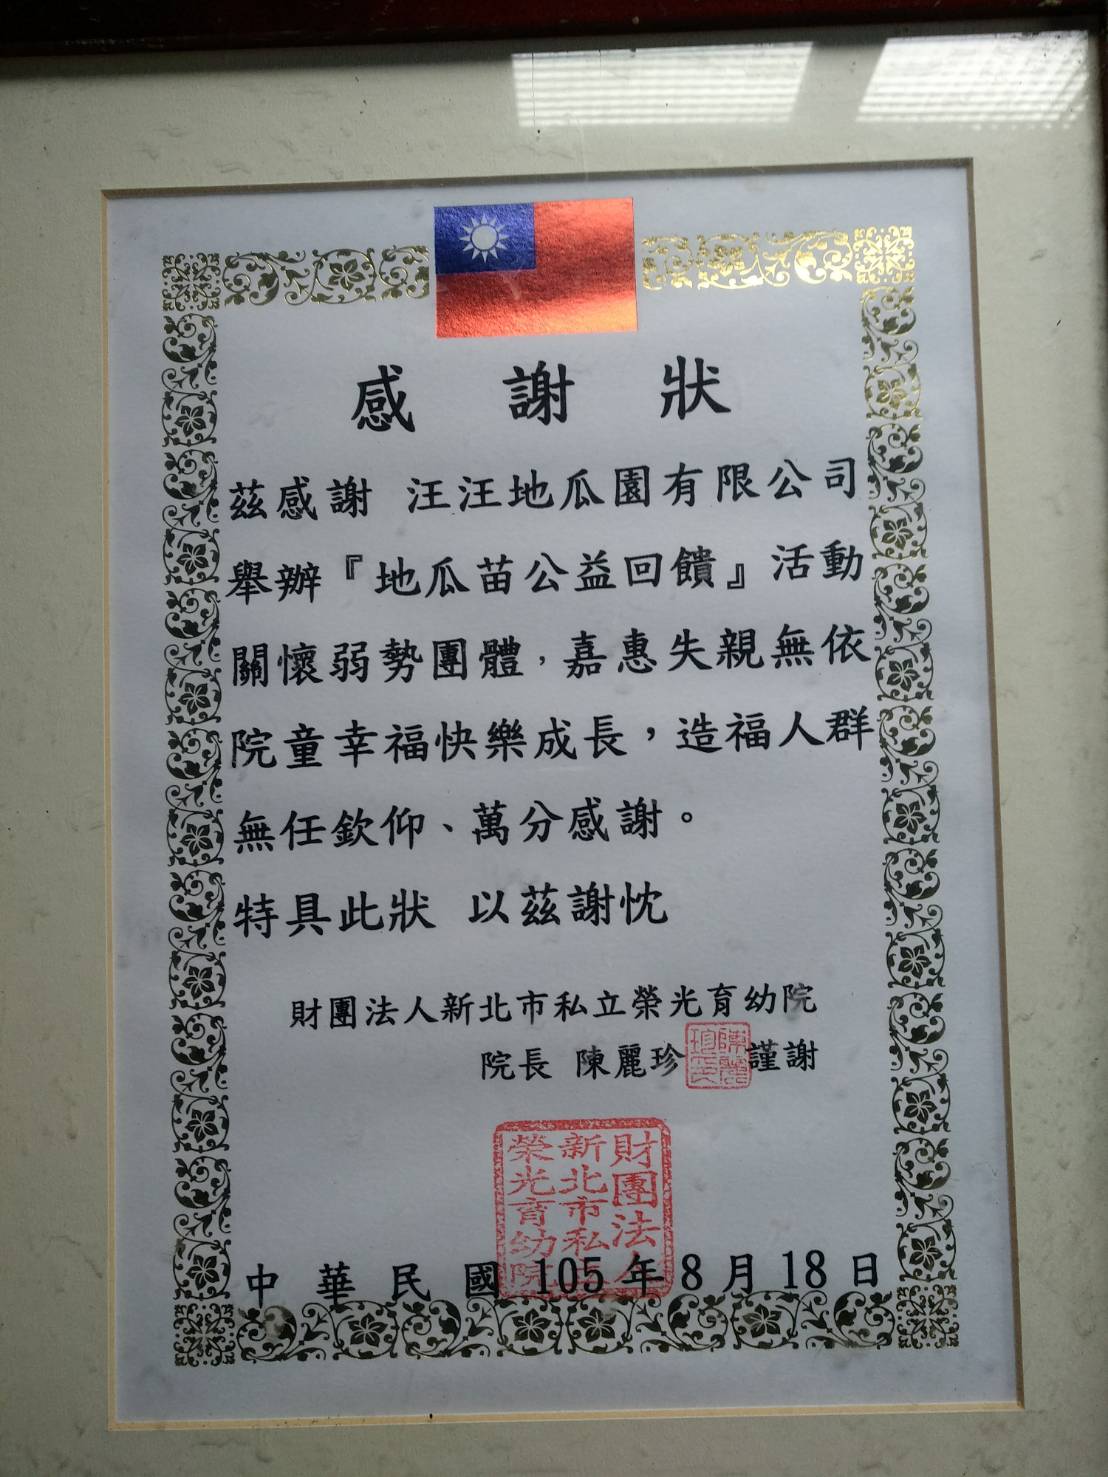 感謝狀
茲感謝 汪汪地瓜園有限公司
舉辦『地瓜苗公益回饋』活動
關懷弱勢團體，嘉惠失親無依
院童幸福快樂成長，造福人群
無任欽仰、萬分感謝。
特具此狀 以茲謝忱
財團法人新北市私立榮光育幼院
院長 陳麗珍 謹謝
陳麗
珍印
財團法人
新北市私立
榮光育幼院
中華民國105年8月18日